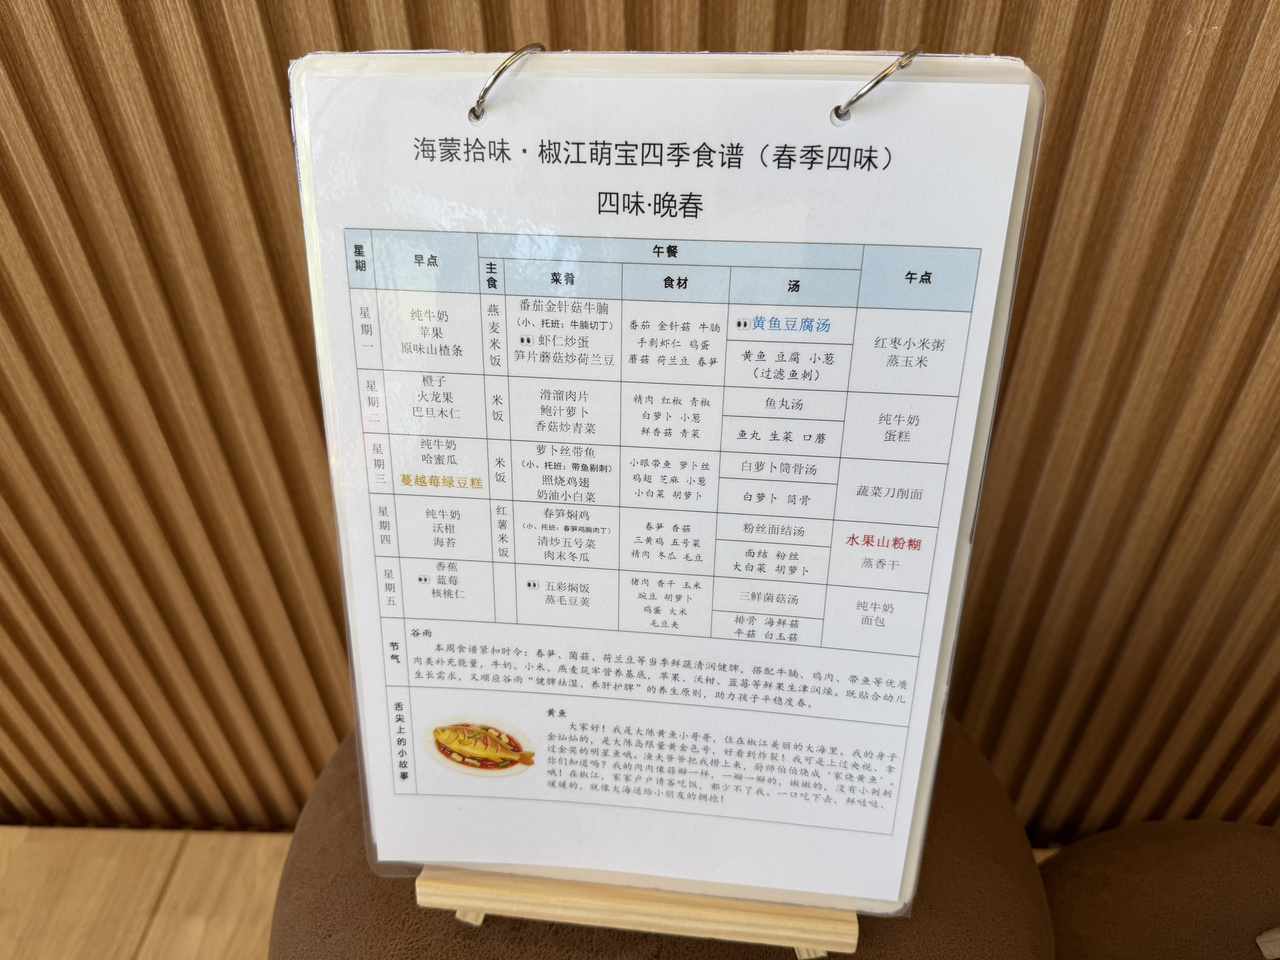 海蒙拾味·椒江萌宝四季食谱（春季四味）
四味·晚春
星期
早点
午餐
午点
主食
菜肴
食材
汤
星期一
纯牛奶
苹果
原味山楂条
燕麦米饭
番茄金针菇牛腩
（小、托班：牛腩切丁）
虾仁炒蛋
笋片蘑菇炒荷兰豆
番茄 金针菇 牛腩
手剥虾仁 鸡蛋
蘑菇 荷兰豆 春笋
黄鱼豆腐汤
黄鱼 豆腐 小葱
（过滤鱼刺）
红枣小米粥
蒸玉米
星期二
橙子
火龙果
巴旦木仁
米饭
滑溜肉片
鲍汁萝卜
香菇炒青菜
精肉 红椒 青椒
白萝卜 小葱
鲜香菇 青菜
鱼丸汤
鱼丸 生菜 口蘑
纯牛奶
蛋糕
星期三
纯牛奶
哈蜜瓜
蔓越莓绿豆糕
米饭
萝卜丝带鱼
（小、托班：带鱼剔刺）
照烧鸡翅
奶油小白菜
小眼带鱼 萝卜丝
鸡翅 芝麻 小葱
小白菜 胡萝卜
白萝卜筒骨汤
白萝卜 筒骨
蔬菜刀削面
星期四
纯牛奶
沃柑
海苔
红薯米饭
春笋焖鸡
（小、托班：春笋鸡胸肉丁）
清炒五号菜
肉末冬瓜
春笋 香菇
三黄鸡 五号菜
精肉 冬瓜 毛豆
粉丝面结汤
面结 粉丝
大白菜 胡萝卜
水果山粉糊
蒸香干
星期五
香蕉
蓝莓
核桃仁
五彩焖饭
蒸毛豆荚
猪肉 香干 玉米
豌豆 胡萝卜
鸡蛋 大米
毛豆夹
三鲜菌菇汤
排骨 海鲜菇
平菇 白玉菇
纯牛奶
面包
节气
谷雨
本周食谱紧扣时令：春笋、菌菇、荷兰豆等当季鲜蔬清润健脾，搭配牛腩、鸡肉、带鱼等优质
肉类补充能量，牛奶、小米、燕麦筑牢营养基底，苹果、沃柑、蓝莓等鲜果生津润燥。既贴合幼儿
生长需求，又顺应谷雨“健脾祛湿、养肝护脾”的养生原则，助力孩子平稳度春。
舌尖上的小故事
黄鱼
大家好！我是大陈黄鱼小哥哥，住在椒江美丽的大海里。我的身子
金灿灿的，是大陈岛限量黄金色号，好看到炸裂！我可是上过央视、拿
过金奖的明星鱼哦。渔夫爷爷把我捞上来，厨师伯伯烧成‘家烧黄鱼’，
你们知道吗？我的肉肉像蒜瓣一样，一瓣一瓣的，嫩嫩的，没有小刺刺
哦！在椒江，家家户户请客吃饭，都少不了我。一口吃下去，鲜哒哒、
暖暖的，就像大海送给小朋友的拥抱！